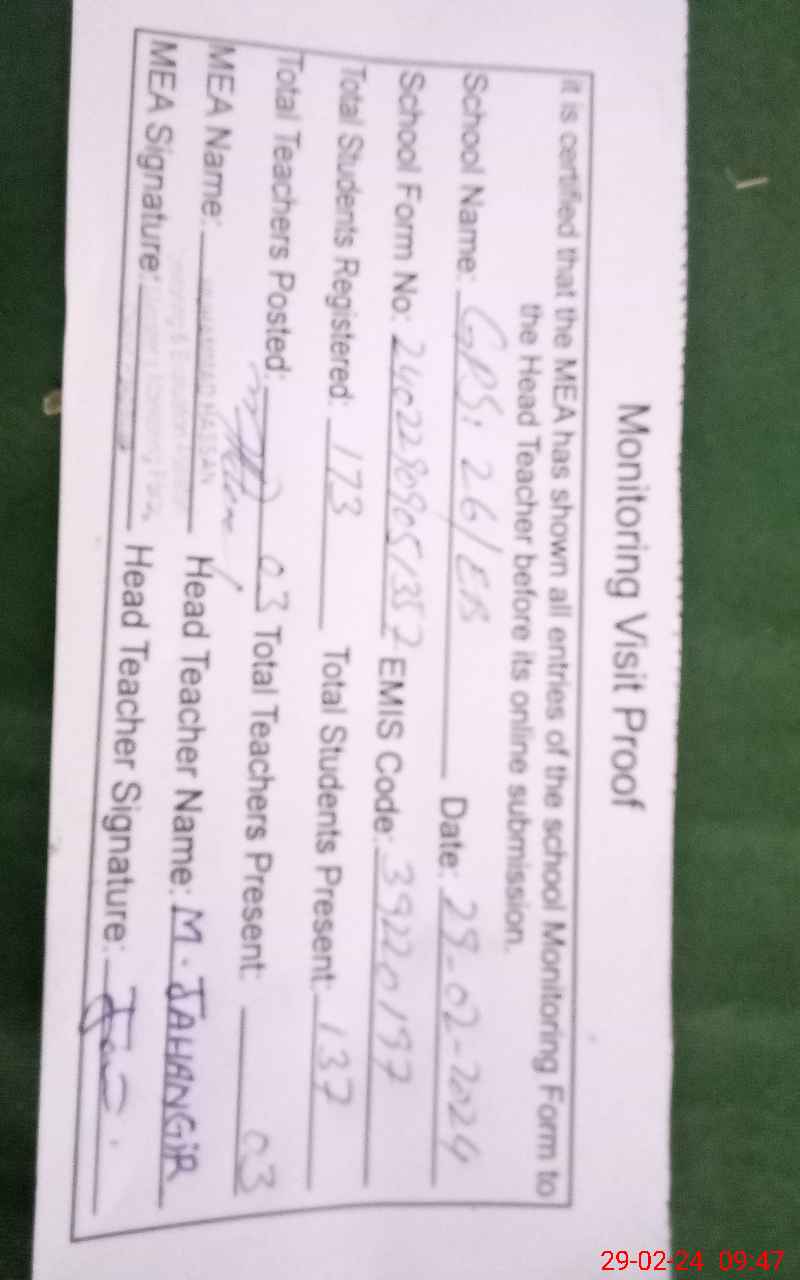 Monitoring Visit Proof
it is certified that the MEA has shown all entries of the school Monitoring Form to
the Head Teacher before its online submission.
School Name: GPS: 26/EB Date: 29-02-2024
School Form No: EMIS Code: 39220197
Total Students Registered: 173 Total Students Present: 137
Total Teachers Posted: 03 Total Teachers Present: 03
MEA Name: MUHAMMAD HASSAN Head Teacher Name: M. JAHANGIR
MEA Signature: Head Teacher Signature:
29-02-24 09:47